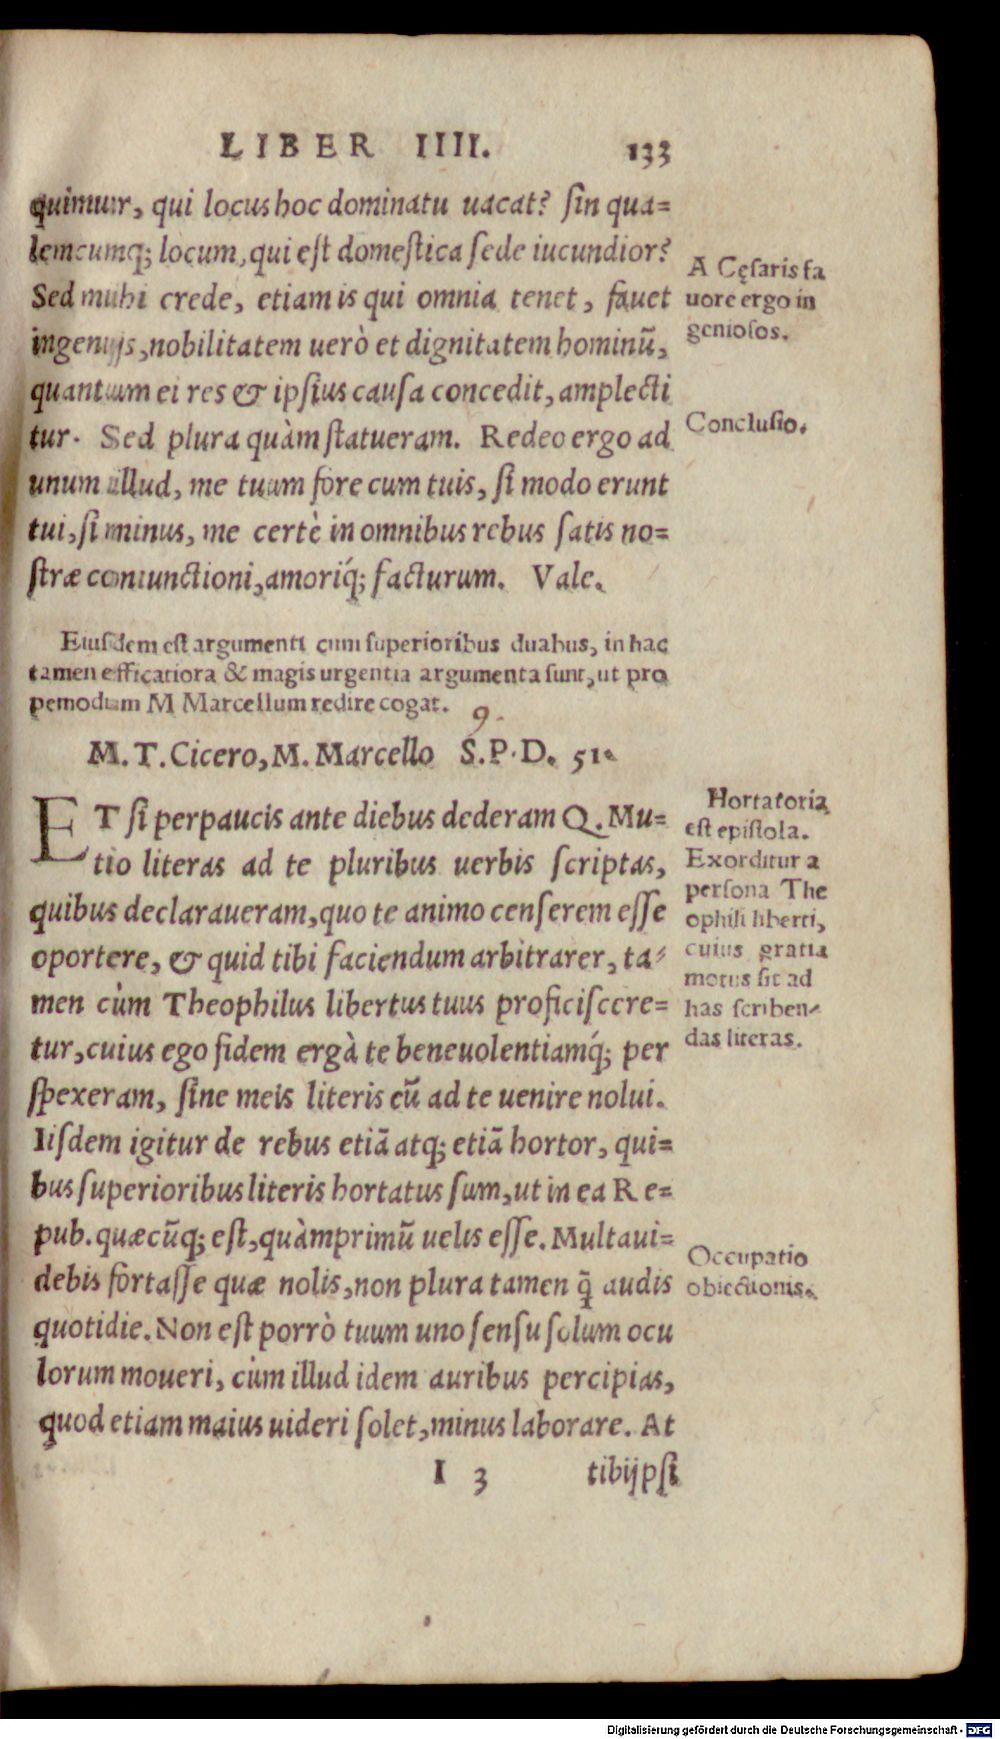 LIBER IIII. 133
quimur, qui locus hoc dominatu uacat? ſin qua=
lemcumq; locum, qui eſt domeſtica ſede iucundior?
Sed mihi crede, etiam is qui omnia tenet, fauet
ingenijs, nobilitatem uerò et dignitatem hominũ,
quantum ei res & ipſius cauſa concedit, amplecti
tur. Sed plura quàm ſtatueram. Redeo ergo ad
unum illud, me tuum fore cum tuis, ſi modo erunt
tui, ſi minus, me certè in omnibus rebus ſatis no=
ſtræ coniunctioni, amoriq́; facturum. Vale.
A Cęſaris fa
uore ergo in
genioſos.
Concluſio.
Eiuſdem eſt argumenti cum ſuperioribus duabus, in hac
tamen efficatiora & magis urgentia argumenta ſunt, ut pro
pemodum M Marcellum redire cogat.
9.
M. T. Cicero, M. Marcello S. P. D. 51.
ET ſi perpaucis ante diebus dederam Q. Mu=
tio literas ad te pluribus uerbis ſcriptas,
quibus declaraueram, quo te animo cenſerem eſſe
oportere, & quid tibi faciendum arbitrarer, ta=
men cùm Theophilus libertus tuus proficiſcere=
tur, cuius ego fidem ergà te beneuolentiamq́; per
ſpexeram, ſine meis literis cũ ad te uenire nolui.
Iiſdem igitur de rebus etiã atq; etiã hortor, qui=
bus ſuperioribus literis hortatus ſum, ut in ea Re=
pub. quæcũq; eſt, quàmprimũ uelis eſſe. Multa ui=
debis fortaſſe quæ nolis, non plura tamen q̃ audis
quotidie. Non eſt porrò tuum uno ſenſu ſolum ocu
lorum moueri, cùm illud idem auribus percipias,
quod etiam maius uideri ſolet, minus laborare. At
Hortatoria
eſt epiſtola.
Exorditur a
perſona The
ophili liberti,
cuius gratia
motus ſit ad
has ſcriben=
das literas.
Occupatio
obiectionis.
I 3 tibi ipſi
Digitalisierung gefördert durch die Deutsche Forschungsgemeinschaft - DFG